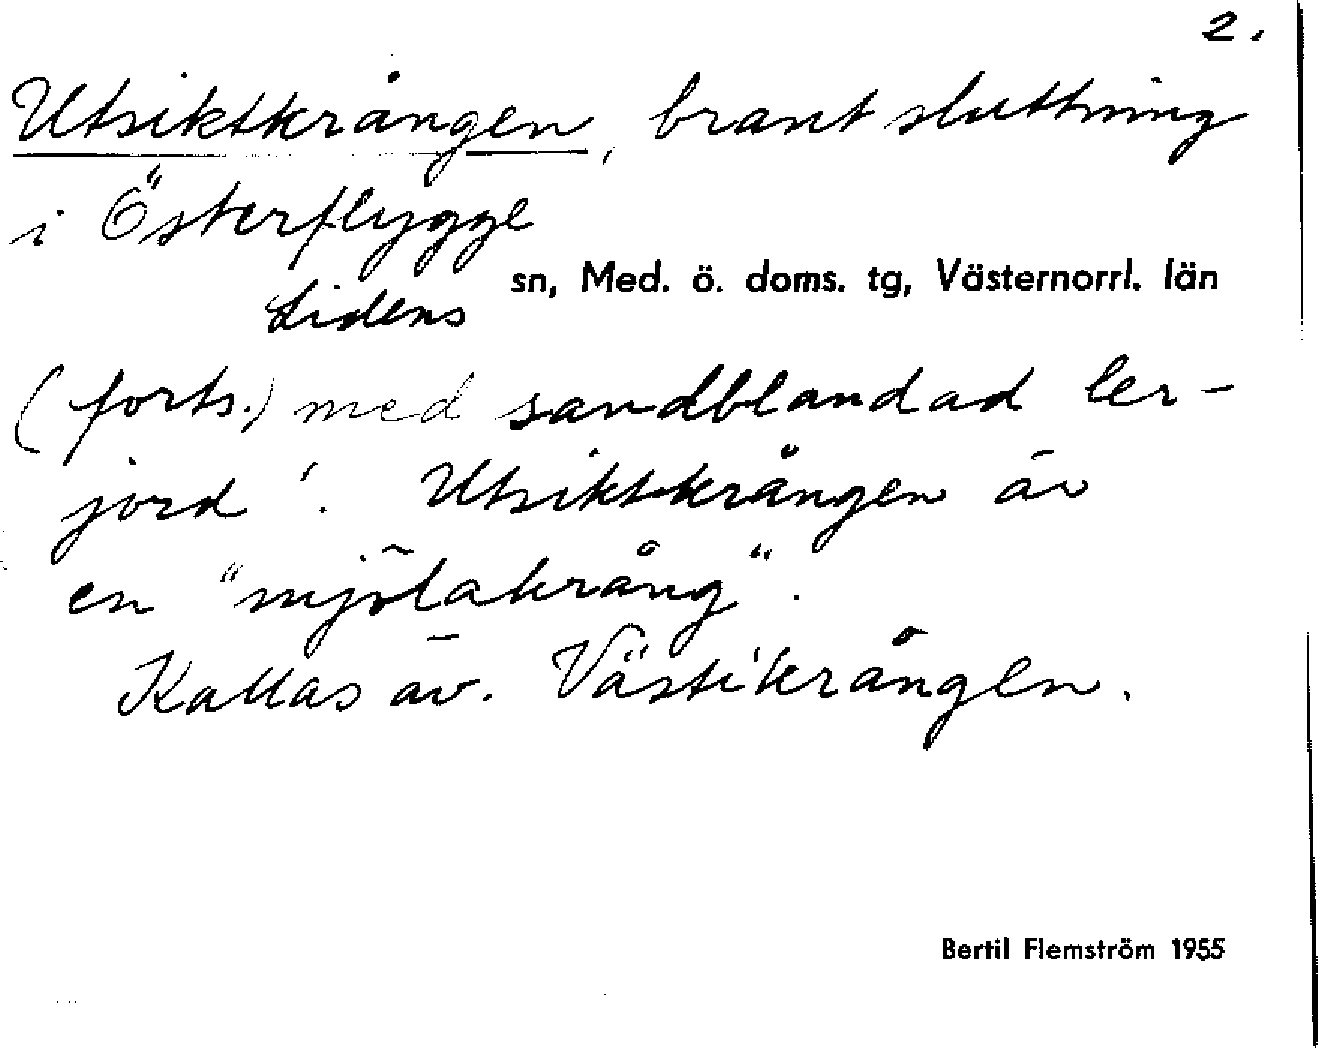 2.
Utsiktkrången, brant sluttning
i Österflygge
Lidens sn, Med. ö. doms. tg, Västernorrl. län
(forts.) med sandblandad ler-
jord'. Utsiktkrången är
en "mjölakrång".
Kallas äv. Västikrången.
Bertil Flemström 1955